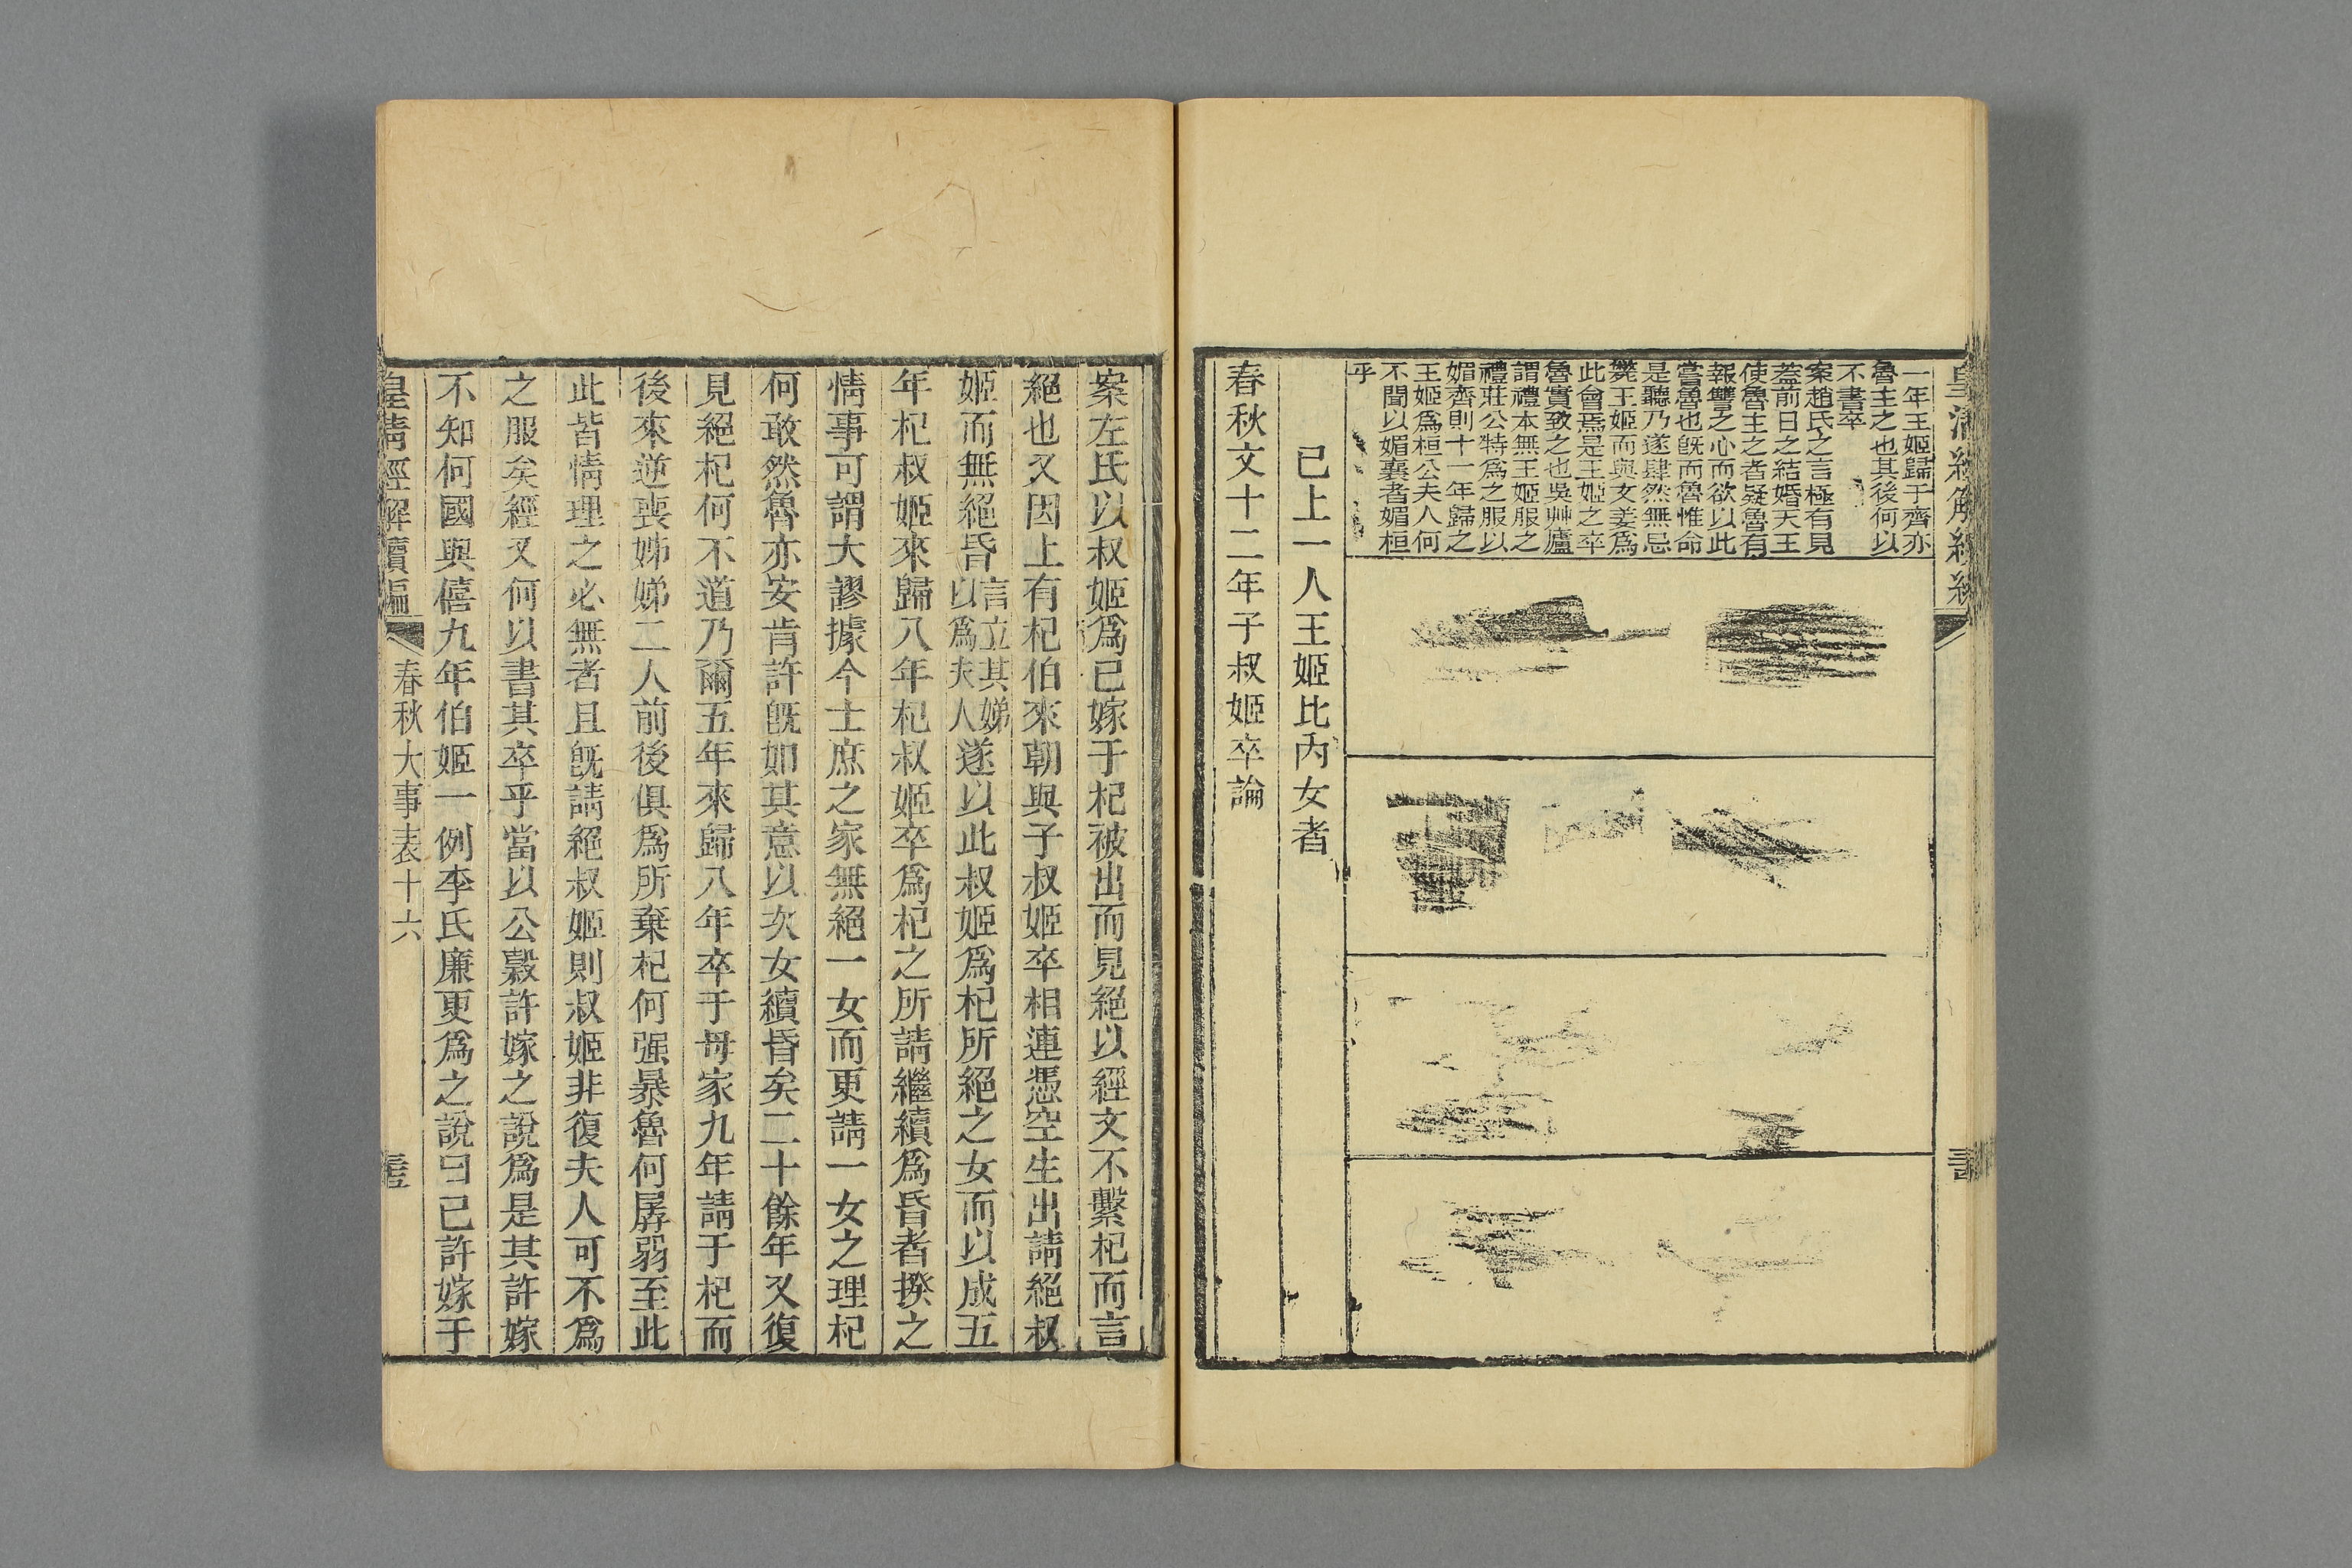 一年王姬歸于齊亦
魯主之也其後何以
不書卒
案趙氏之言極有見
蓋前日之結婚天王
使魯主之者疑魯有
報讐之心而欲以此
嘗魯也旣而魯惟命
是聽乃遂肆然無忌
斃王姬而與文姜爲
此會焉是王姬之卒
魯實致之也吳艸廬
謂禮本無王姬服之
禮莊公特爲之服以
媚齊則十一年歸之
王姬爲桓公夫人何
不聞以媚襄者媚桓
乎
已上一人王姬比內女者
春秋文十二年子叔姬卒論
案左氏以叔姬爲已嫁于杞被出而見絕以經文不繫杞而言
絕也又因上有杞伯來朝與子叔姬卒相連憑空生出請絕叔
姬而無絕昏言立其娣以爲夫人遂以此叔姬爲杞所絕之女而以成五
年杞叔姬來歸八年杞叔姬卒爲杞之所請繼續爲昏者揆之
情事可謂大謬據今士庶之家無絕一女而更請一女之理杞
何敢然魯亦安肯許旣如其意以次女續昏矣二十餘年又復
見絕杞何不道乃爾五年來歸八年卒于母家九年請于杞而
後來逆喪姊娣二人前後俱爲所棄杞何强暴魯何孱弱至此
此皆情理之必無者且旣請絕叔姬則叔姬非復夫人可不爲
之服矣經又何以書其卒乎當以公穀許嫁之說爲是其許嫁
不知何國與僖九年伯姬一例李氏廉更爲之說曰已許嫁于
皇清經解續編
春秋大事表十六